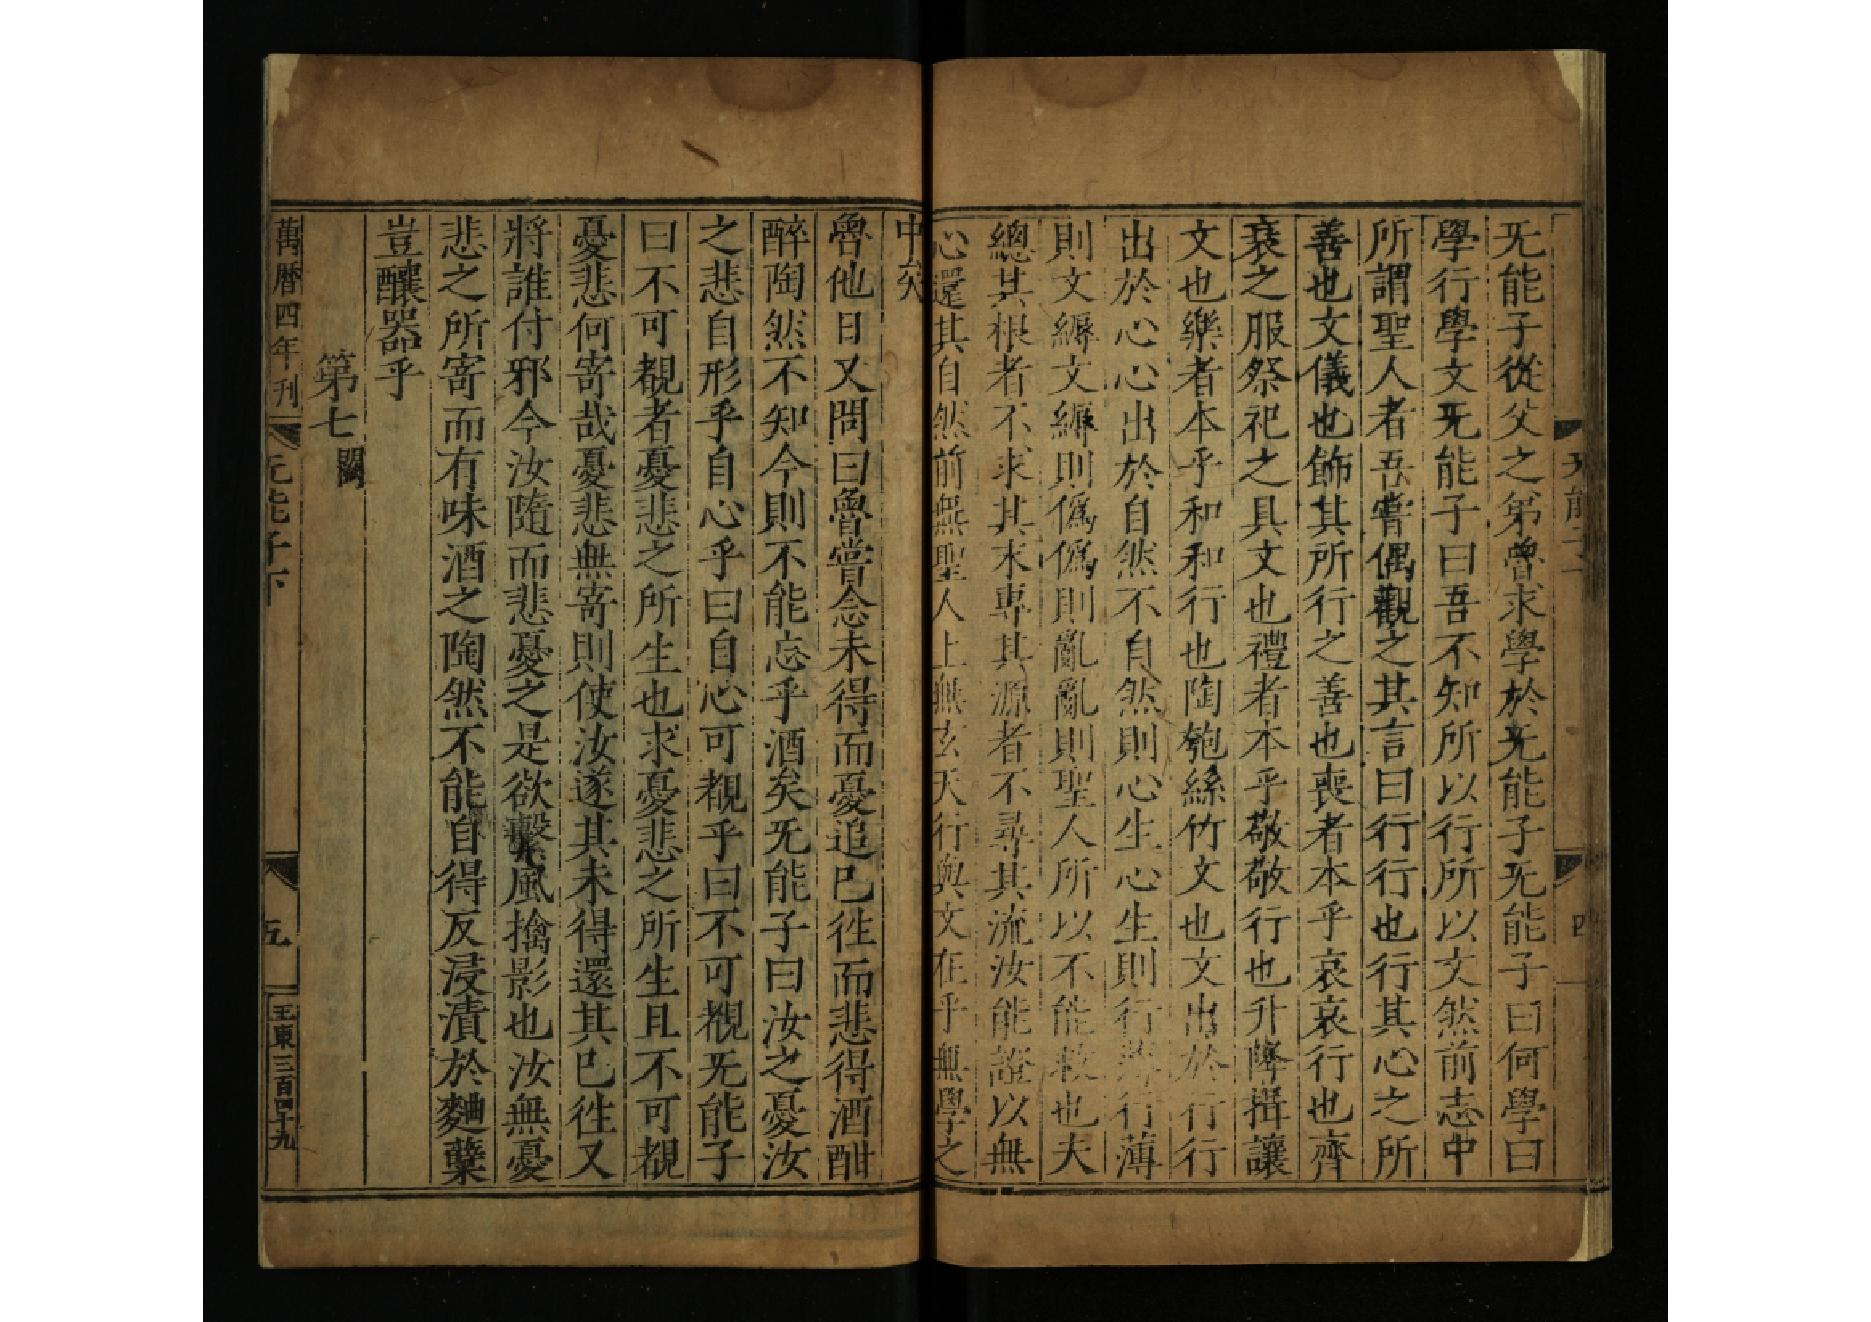 无能子從父之弟魯求學於无能子无能子曰何學曰
學行學文无能子曰吾不知所以行所以文然前志中
所謂聖人者吾嘗偶觀之其言曰行行也行其心之所
善也文儀也飾其所行之善也喪者本乎哀哀行也齊
衰之服祭祀之具文也禮者本乎敬敬行也升降揖讓
文也樂者本乎和和行也陶匏絲竹文也文出於行行
出於心心出於自然不自然則心生心生則行薄行薄
則文縟文縟則僞僞則亂亂則聖人所以不能救也夫
總其根者不求其末專其源者不尋其流汝能證以無
心還其自然前無聖人上無玄天行與文在乎無學之
中矣
魯他日又問曰魯嘗念未得而憂追已徃而悲得酒酣
醉陶然不知今則不能忘乎酒矣无能子曰汝之憂汝
之悲自形乎自心乎曰自心可覩乎曰不可覩无能子
曰不可覩者憂悲之所生也求憂悲之所生且不可覩
憂悲何寄哉憂悲無寄則使汝遂其未得還其已徃又
將誰付邪今汝隨而悲憂之是欲繫風擒影也汝無憂
悲之所寄而有味酒之陶然不能自得反浸漬於麯蘖
豈釀器乎
第七闕
萬曆四年刊
无能子下
五
王東三百四十九